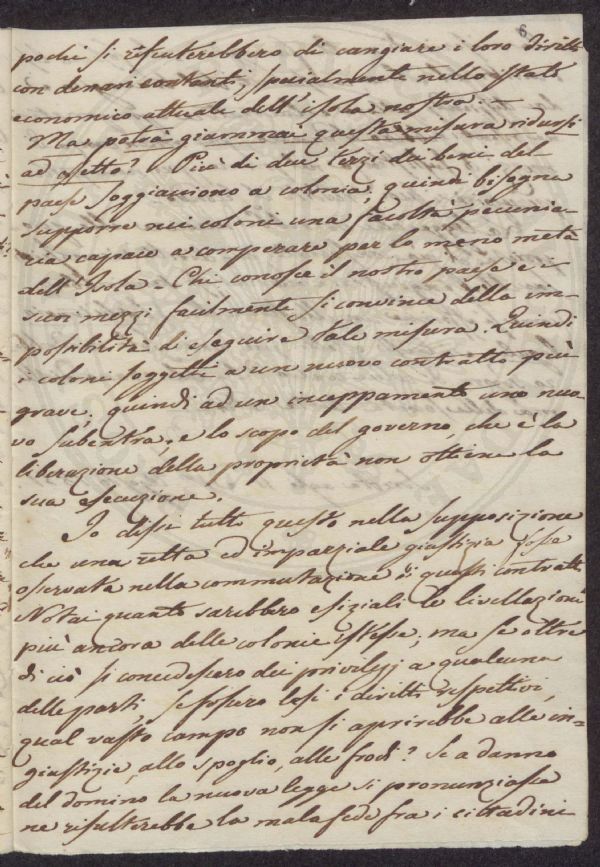 6
pochi si rifiuterebbero di cangiare i loro diritti
con denari contanti, specialmente nello stato
economico attuale dell'isola nostra. –
Ma potrà giammai questa misura ridursi
ad effetto? Più di due terzi dei beni del
paese soggiacciono a colonia, quindi bisogna
supporre nei coloni una facoltà pecunia-
ria capace a comperare per lo meno metà
dell'Isola – Chi conosce il nostro paese e i
suoi mezzi facilmente si convince della im-
possibilità di eseguire tale misura. Quindi
i coloni soggetti a un nuovo contratto più
grave, quindi ad un inceppamento uno nuo-
vo subentra, e lo scopo del governo, che è la
liberazione della proprietà non ottiene la
sua esecuzione.
Io dissi tutto questo nella supposizione
che una retta ed imparziale giustizia fosse
osservata nella commutazione di questi contratti
Notai quanto sarebbero esiziali le livellazioni
più ancora delle colonie istesse, ma se oltre
di ciò si concedessero dei privilegj a qualcuna
delle parti, se fossero lesi i diritti rispettivi,
qual vasto campo non si aprirebbe alle in=
giustizie, allo spoglio, alle frodi? Se a danno
del domino la nuova legge si pronunziasse
ne risulterebbe la mala fede fra i cittadini